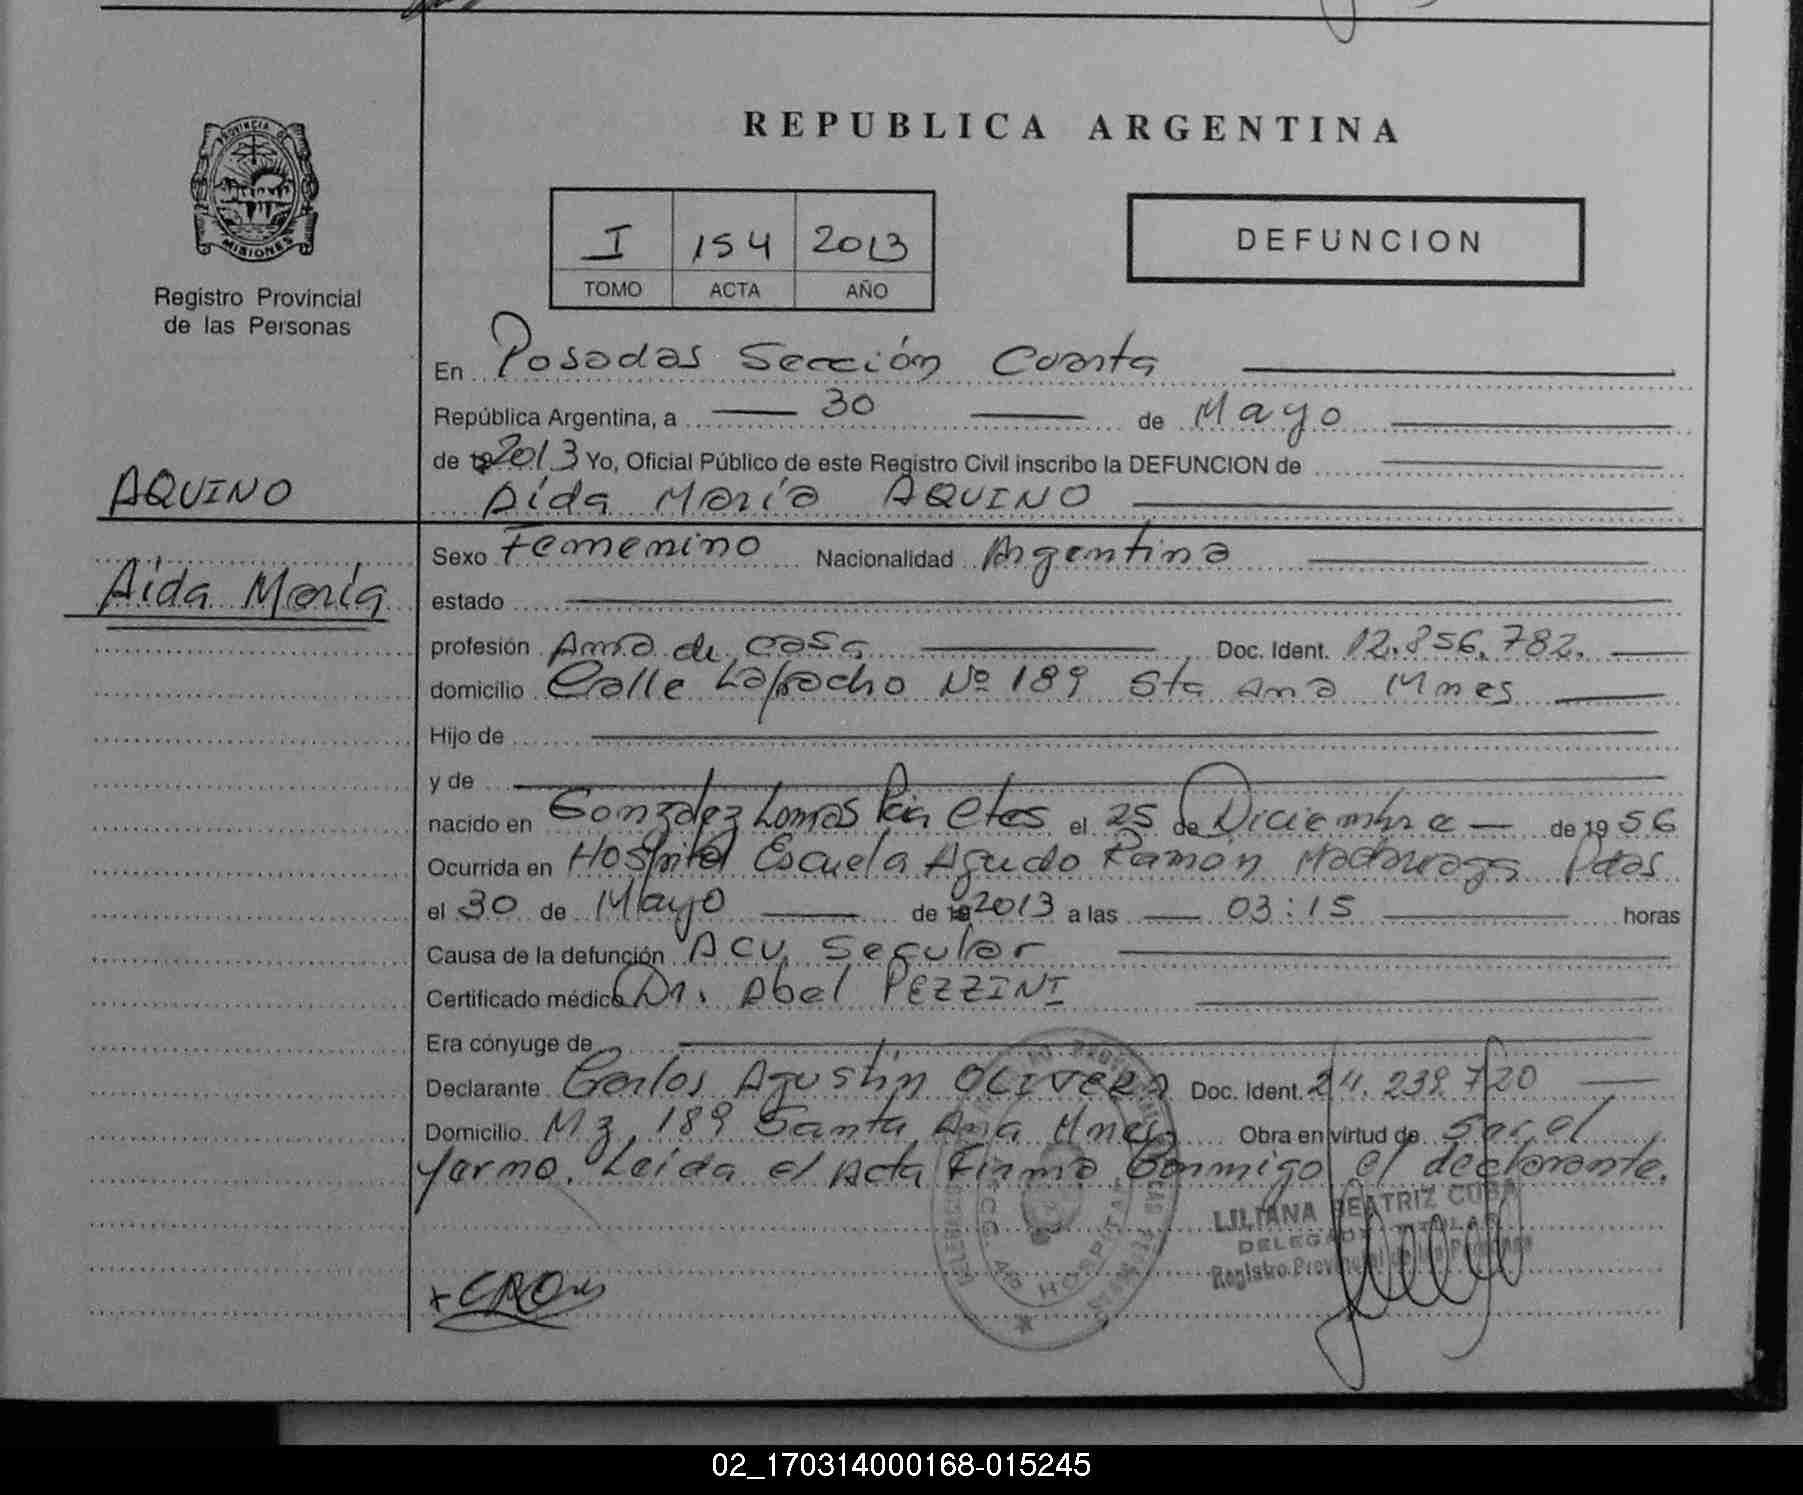 PROVINCIA DE
MISIONES
Registro Provincial
de las Personas
AQUINO
Aida María
REPUBLICA ARGENTINA
I 154 2013
TOMO ACTA AÑO
DEFUNCION
En Posadas Sección Cuarta
República Argentina, a 30 de Mayo
de 2013 Yo, Oficial Público de este Registro Civil inscribo la DEFUNCION de
Aída María AQUINO
Sexo Femenino Nacionalidad Argentina
estado
profesión Ama de casa Doc. Ident. 12.856.782.
domicilio Calle Lapacho Nº 189 Sta Ana Mnes
Hijo de
y de
nacido en Gonzalez Lomas Ctes el 25 de Diciembre de 19 56
Ocurrida en Hospital Escuela Agudo Ramón Madariaga Pdas
el 30 de Mayo de 2013 a las 03:15 horas
Causa de la defunción ACV Secular
Certificado médico Dr. Abel PEZZINI
Era cónyuge de
Declarante Carlos Agustín OLIVERA Doc. Ident. 24.239.720
Domicilio Mz 189 Santa Ana Mnes Obra en virtud de Ser el
Yerno. Leída el Acta Firma Conmigo el declarante.
LILIANA BEATRIZ CUBA
DELEGADA TITULAR
Registro Provincial de las Personas
02_170314000168-015245